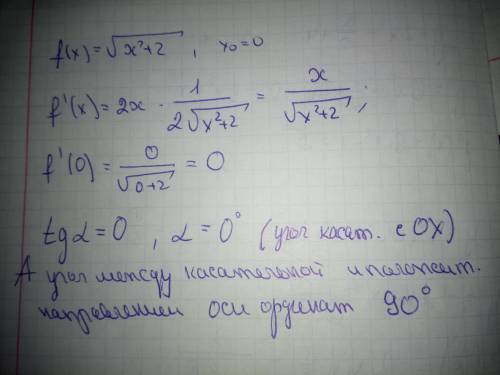 f(x)=√(x²+2) , x₀=0
f'(x)=2x · 1/(2√(x²+2)) = x/√(x²+2) ;
f'(0) = 0/√(0+2) = 0
tg α = 0 , α = 0° (угол касат. с OX)
А угол между касательной и положит.
направлением оси ординат 90°